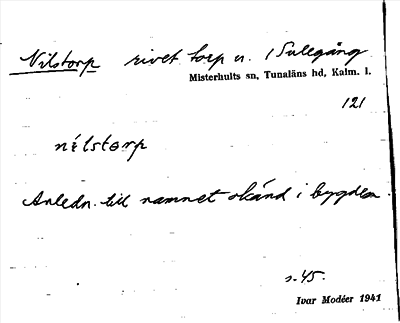 Nilstorp rivet torp u. / Sulegång
Misterhults sn, Tunaläns hd, Kalm. l.
121
nílstɵrp
Anledn. till namnet okänd i bygden.
s. 45.
Ivar Modéer 1941